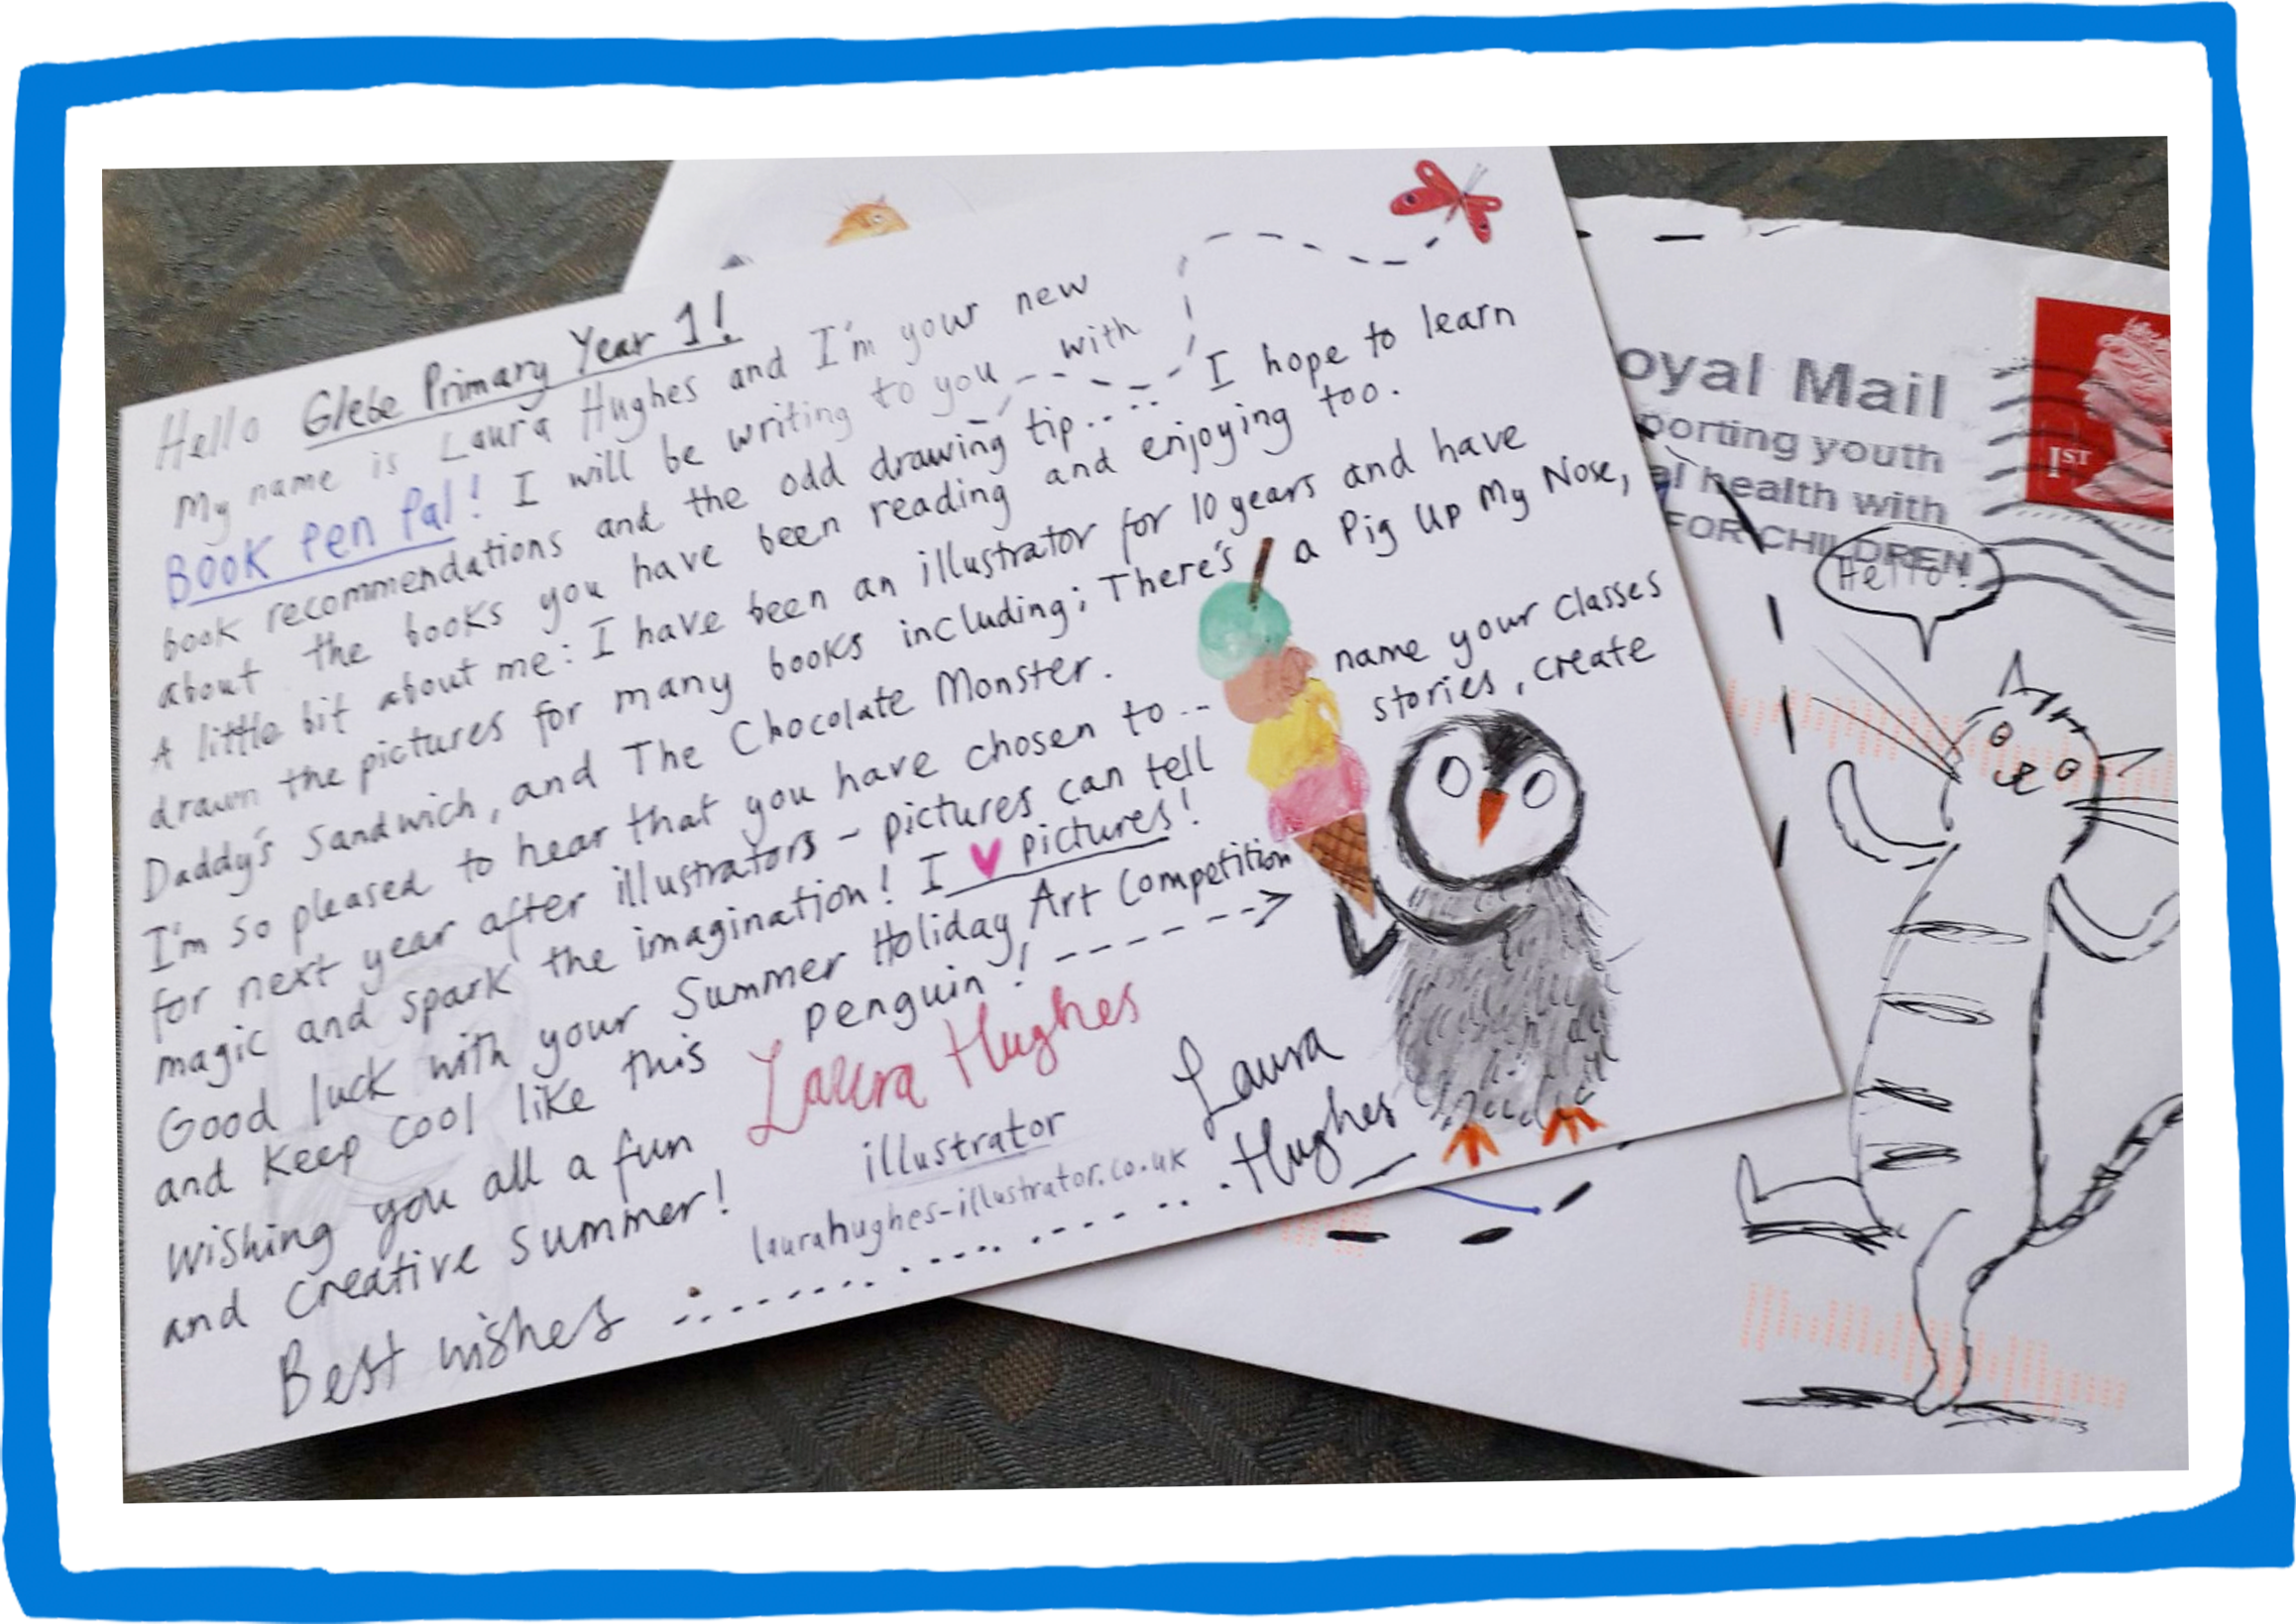 Hello Glebe Primary Year 1!
My name is Laura Hughes and I'm your new
Book Pen Pal! I will be writing to you with
book recommendations and the odd drawing tip.... I hope to learn
about the books you have been reading and enjoying too.
A little bit about me: I have been an illustrator for 10 years and have
drawn the pictures for many books including; There's a Pig Up My Nose,
Daddy's Sandwich, and The Chocolate Monster.
I'm so pleased to hear that you have chosen to .. name your classes
for next year after illustrators - pictures can tell stories, create
magic and spark the imagination! I ♥ pictures!
Good luck with your Summer Holiday Art Competition
and keep cool like this penguin!
Wishing you all a fun
and creative summer!
Best wishes
Laura Hughes
illustrator
laurahughes-illustrator.co.uk
Laura
Hughes
oyal Mail
porting youth
al health with
FOR CHILDREN
1ST
Hello!